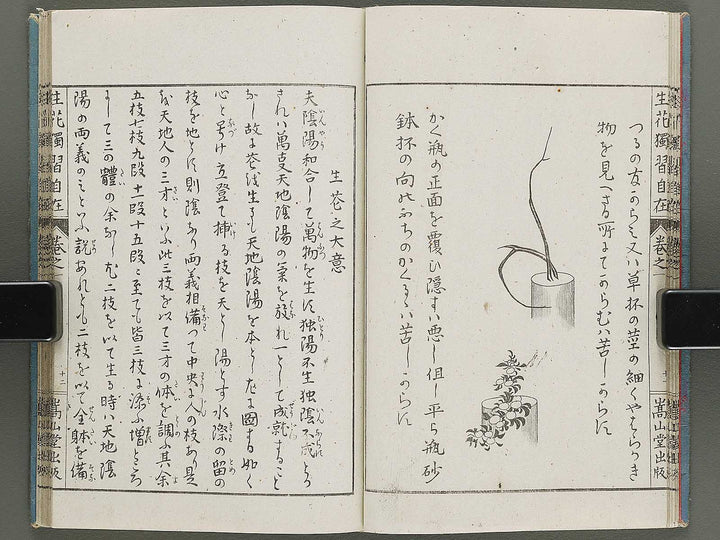 生花獨習自在
卷之
嵩山堂出版
つるの友からミ又ハ草杯の莖の細くやはらかき
物を見へさる所にてからむハ苦しからす
かく瓶の正面を覆ひ隠すハ悪し但し平ら瓶砂
鉢杯の向のふちのかくるゝハ苦しからす
生花之大意
夫陰陽和合して萬物を生す独陽不生独陰不成とか
されハ萬支天地陰陽の氣を放れ一として成就すること
なし故に花を生るも天地陰陽を本とし左な圖する如く
心と号け立登て挿る枝を天とし陽とす水際の留の
枝を地とす則陰なり両義相備つて中央は人の枝なり是
を天地人の三才といふ此三枝を以て三才の体を調ふ其余
五枝七枝九段十一段十五段に至ても皆三枝に添ふ増ところ
にして三の體の余なし尤二枝を以て生る時ハ天地陰
陽の両義のミといふ説あれとも二枝を以て全躰を備
生花獨習自在
卷之
十二
嵩山堂出版